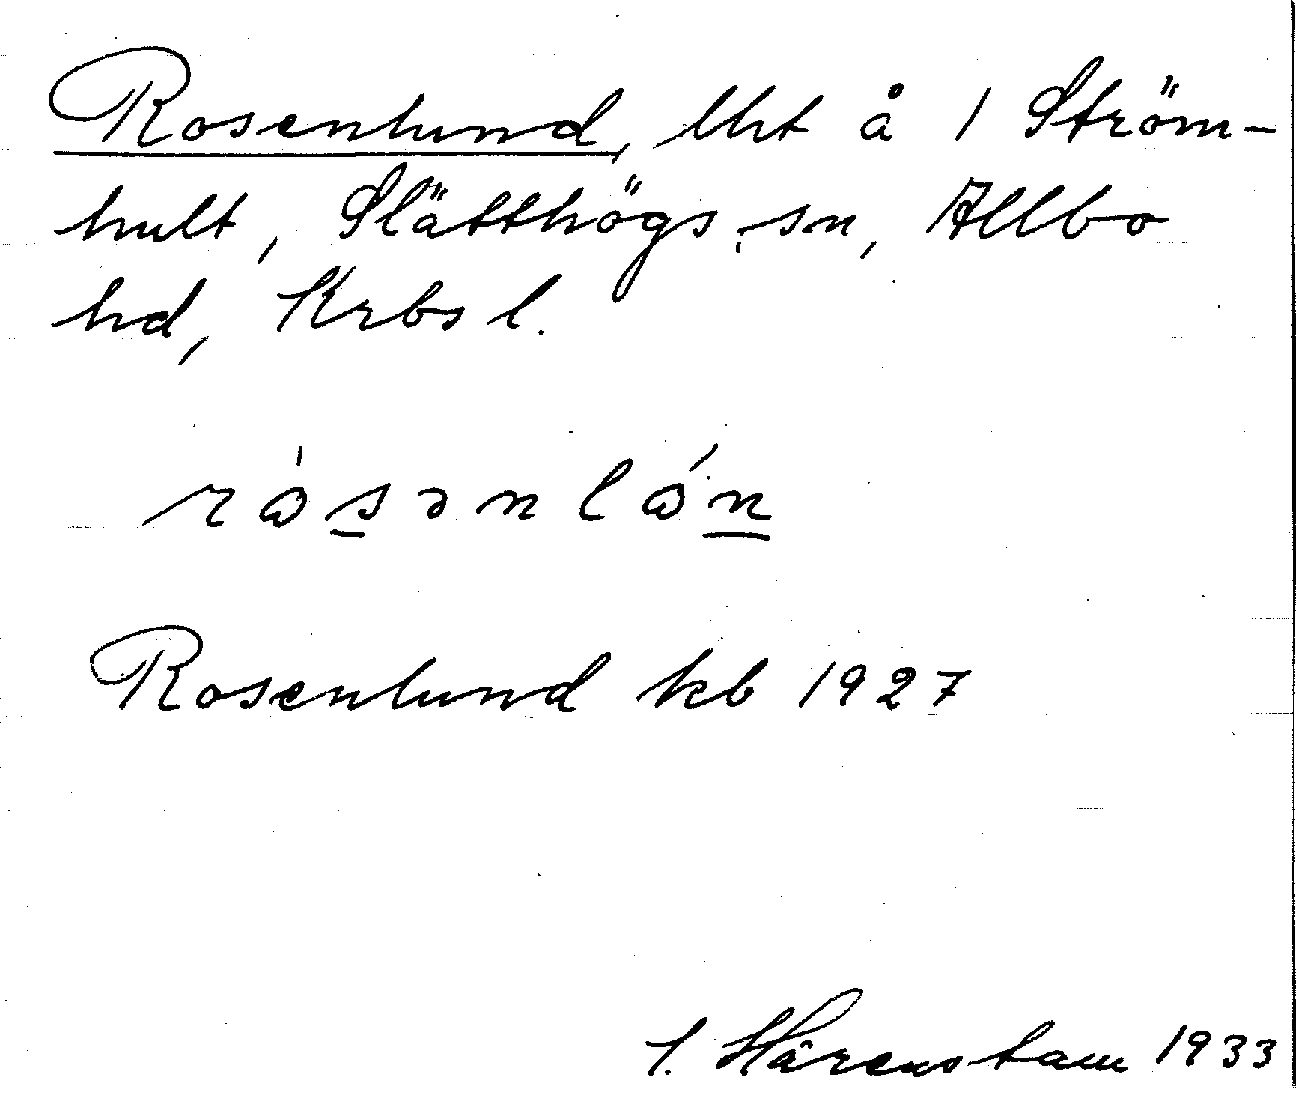 Rosenlund, lht å 1 Ström-
hult, Slätthögs sn, Allbo
hd, Krbs l.
Rosenlund kb 1927
Hårenstam 1933